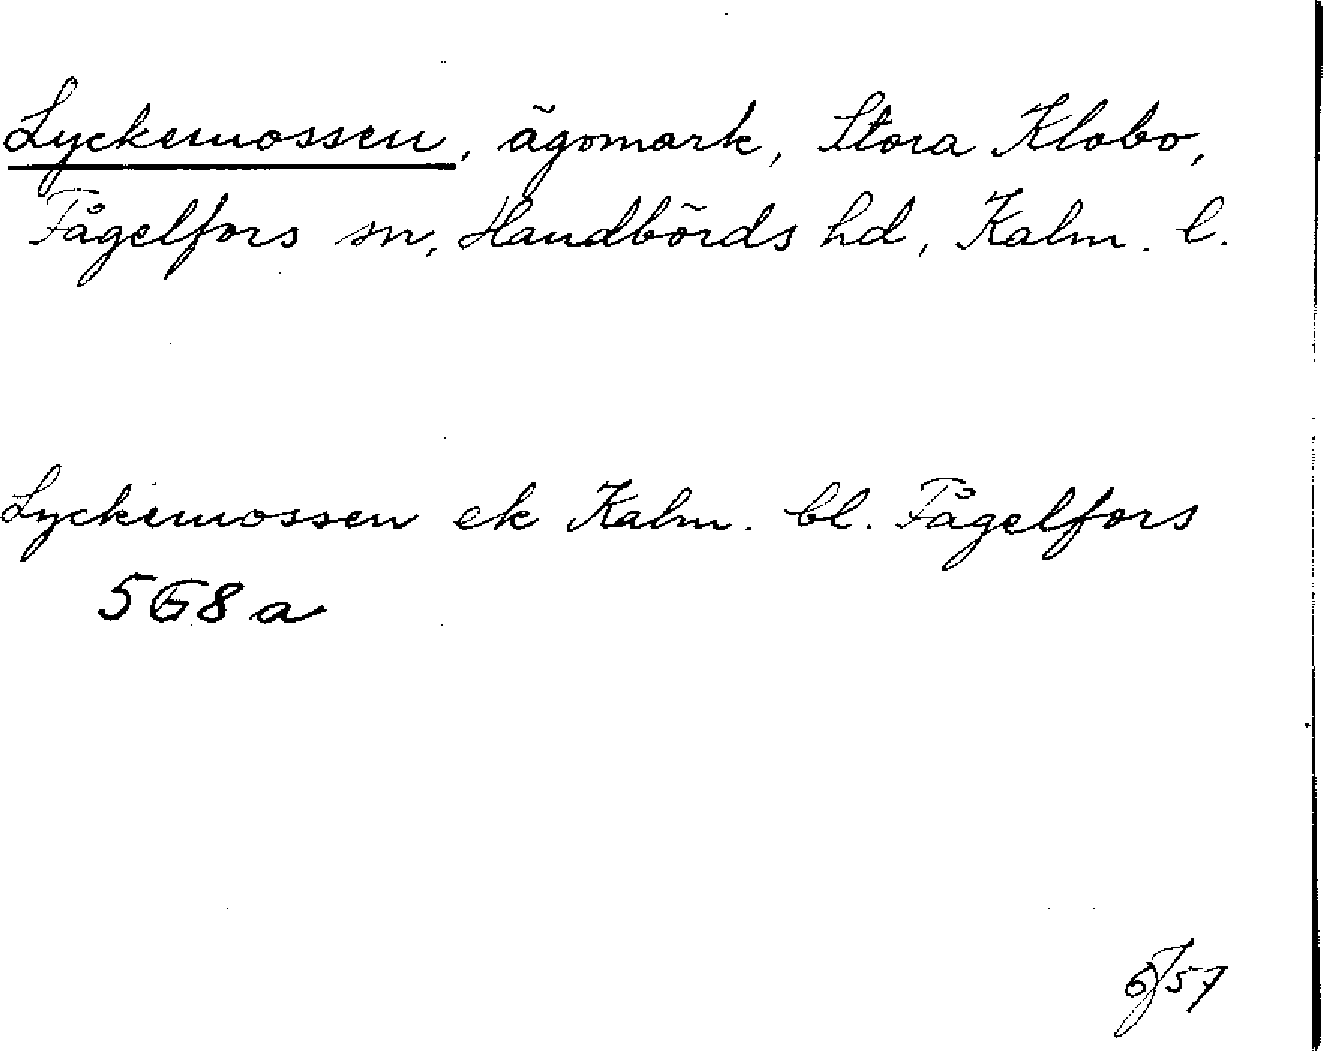 Lyckemossen, ägomark, Stora Klobo,
Fågelfors sn, Handbörds hd, Kalm. l.
Lyckemossen ek Kalm. bl. Fågelfors
5G8a